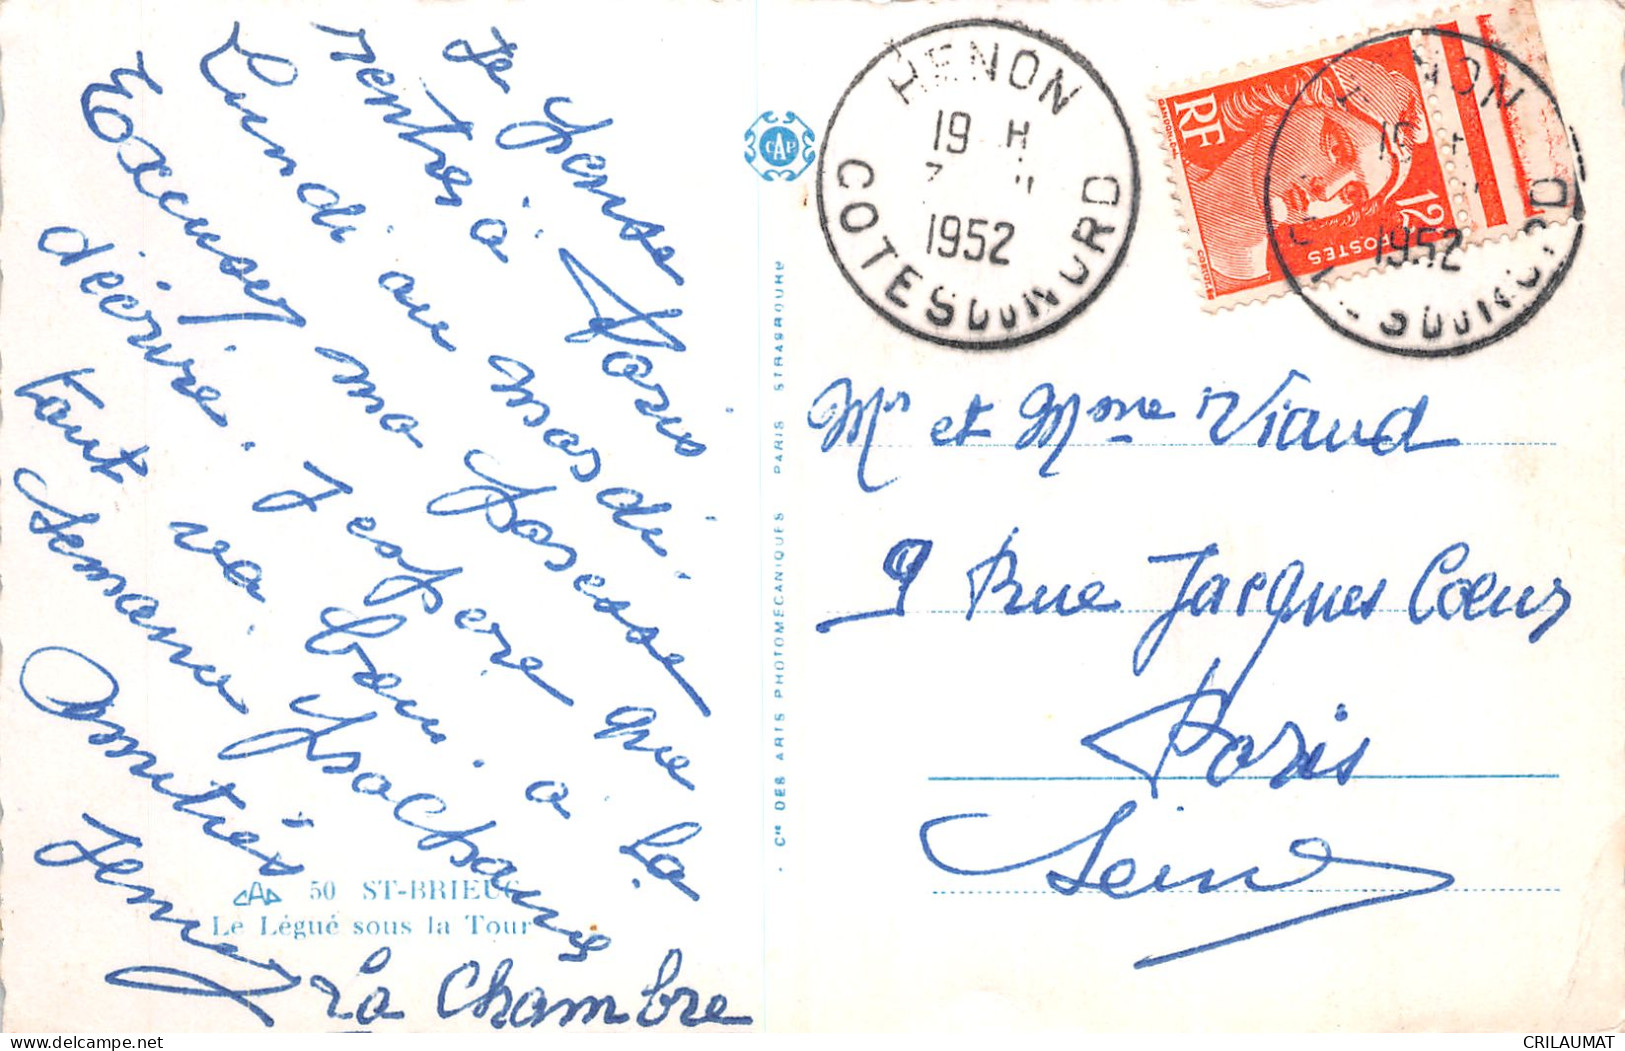 Je pense
rentrer à Paris
Lundi ou mardi.
Excusez ma paresse
d'écrire. J'espère que la
tout va bien. à la
semaine prochaine
Amitiés
Jenny
La Chambre
50 ST-BRIEUC
Le Légué sous la Tour
CAP
Cie DES ARTS PHOTOMÉCANIQUES PARIS STRASBOURG
HENON
19 H
1952
COTES DU NORD
RF
12F
POSTES
GANDON
HENON
19 H
1952
COTES DU NORD
Mr et Mme Viaud
9 Rue Jacques Coeur
Paris
Seine
CRILAUMAT